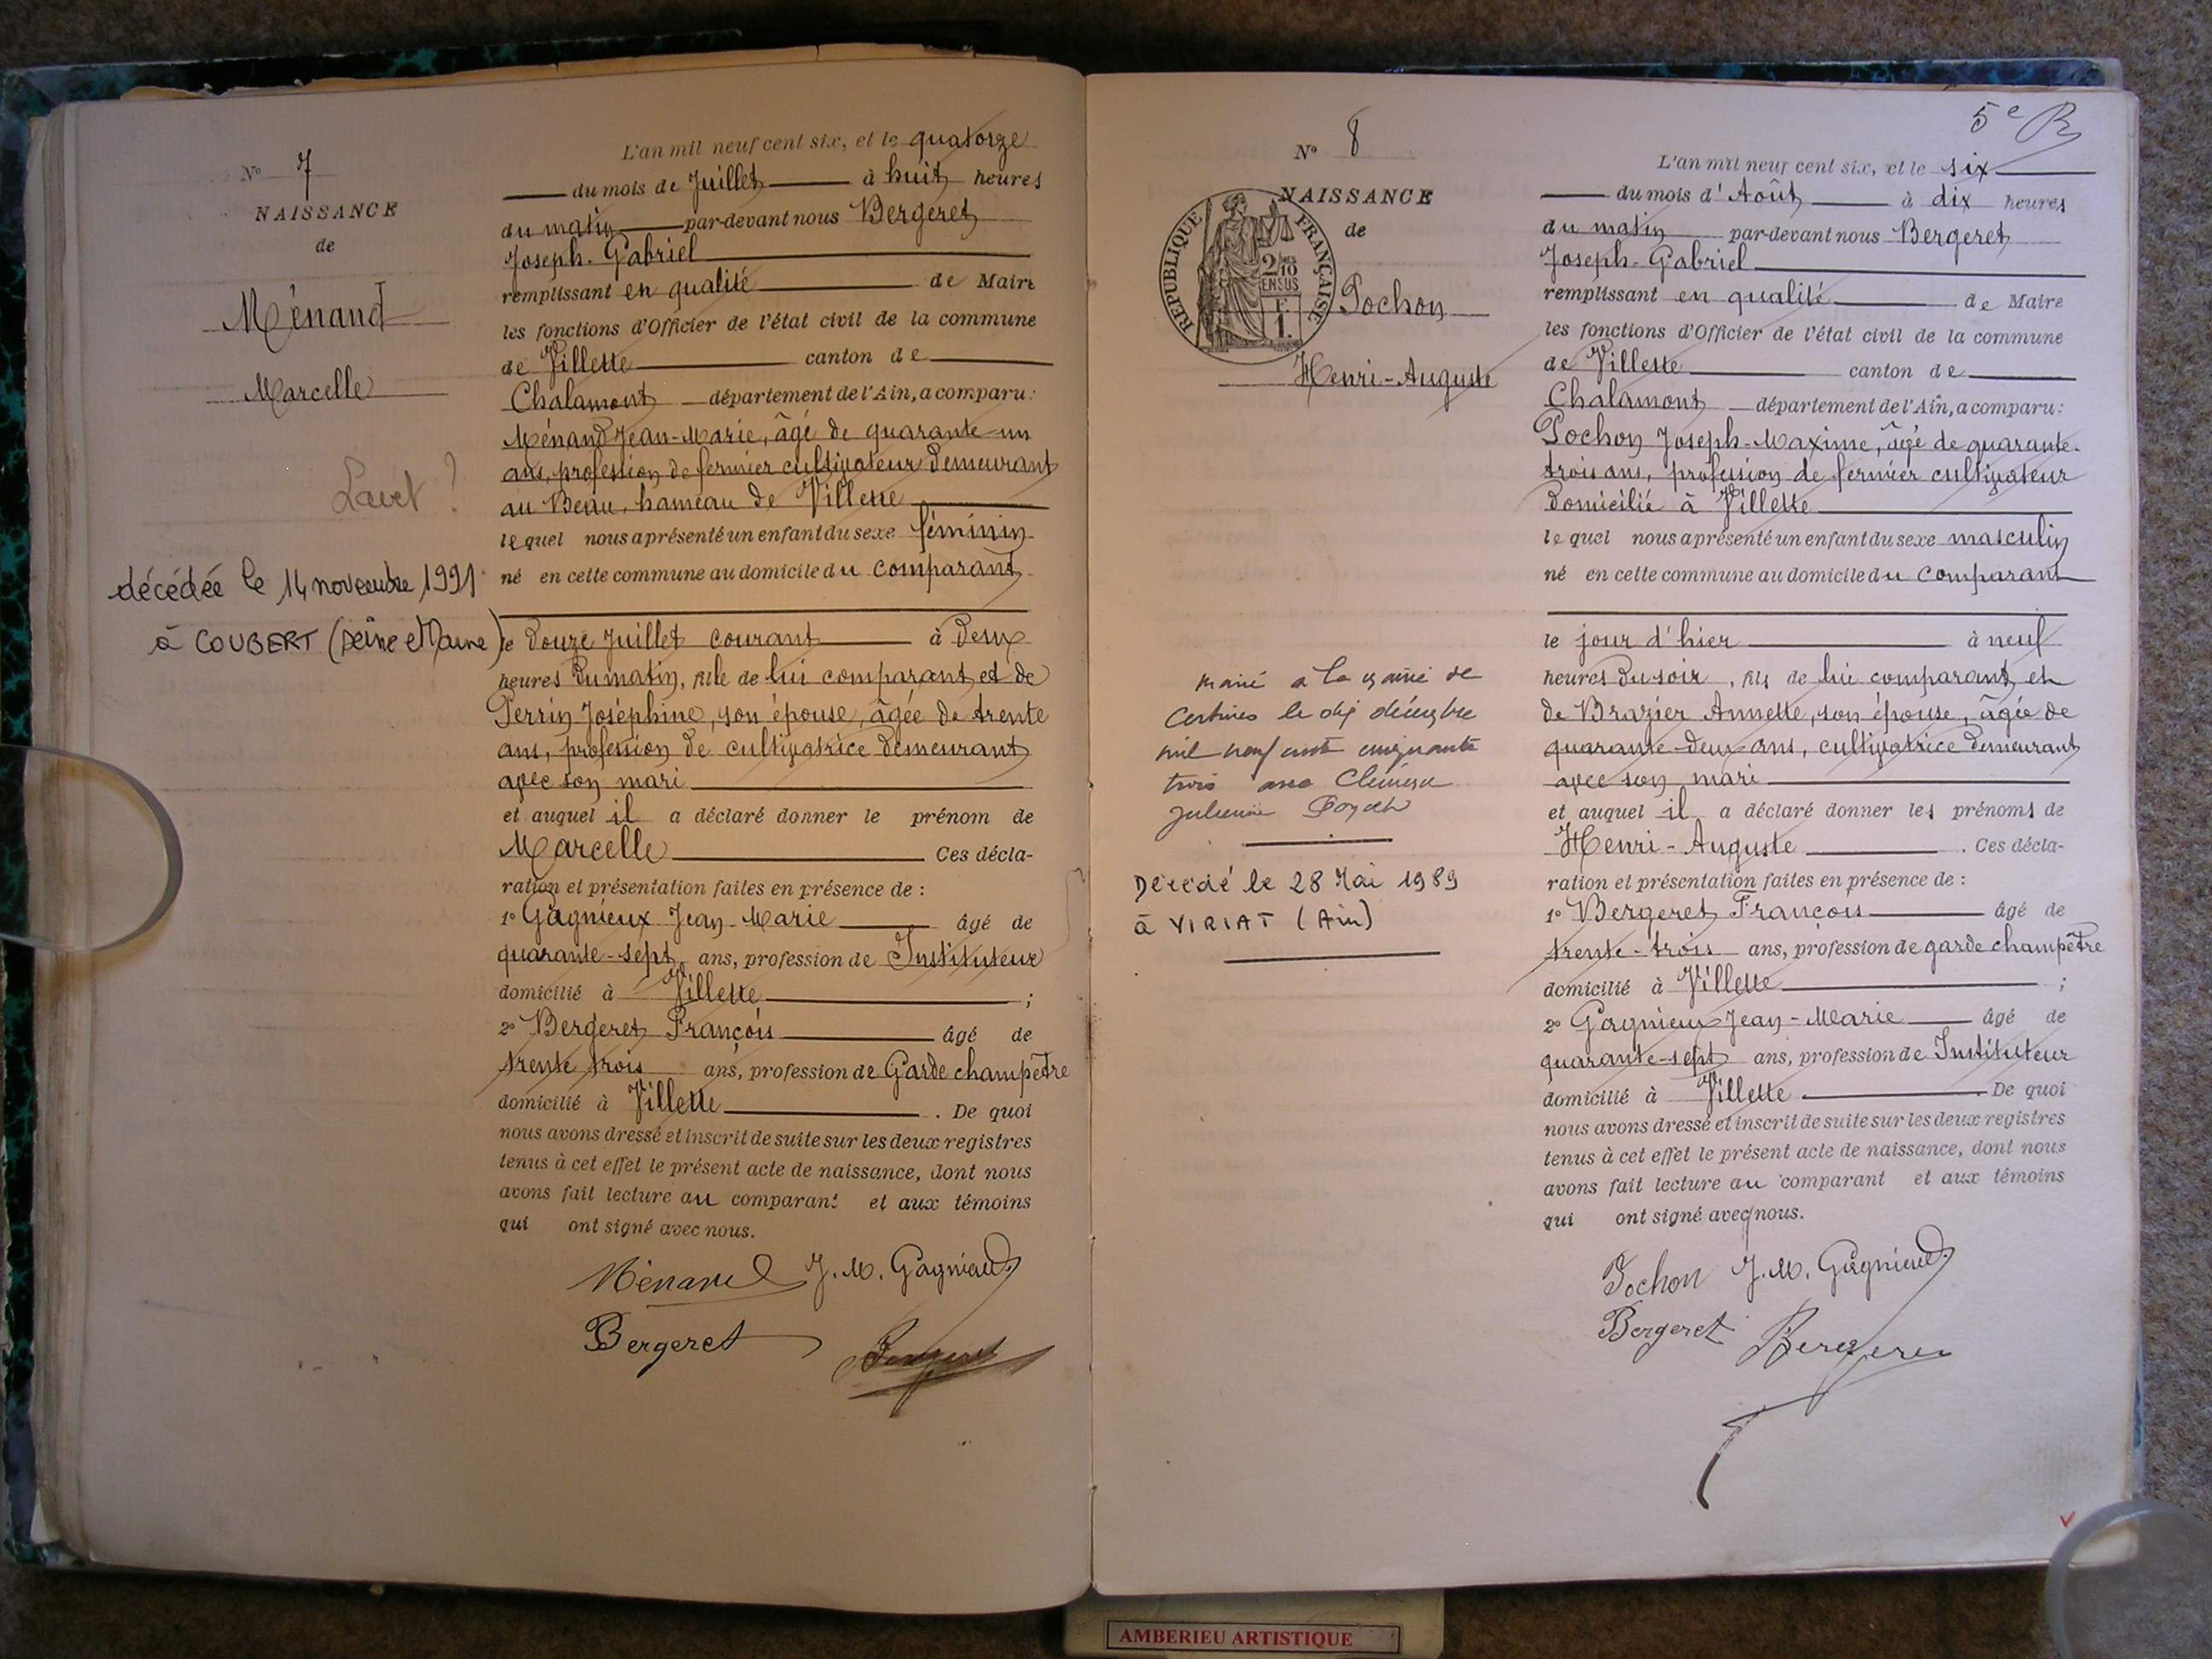 N° 7
NAISSANCE
de
Ménand
Marcelle
décédée le 14 novembre 1991
à COUBERT (Seine et Marne)
L'an mil neuf cent six, et le quatorze
du mois de Juillet à huit heures
du matin par-devant nous Bergeret
Joseph-Gabriel
remplissant en qualité de Maire
les fonctions d'Officier de l'état civil de la commune
de Villette canton de
Chalamont département de l'Ain, a comparu :
Ménand Jean-Marie, âgé de quarante-un
ans, profession de fermier cultivateur demeurant
au Beau, hameau de Villette
lequel nous a présenté un enfant du sexe féminin
né en cette commune au domicile du comparant
le douze Juillet courant à deux
heures du matin, fille de lui comparant et de
Perrin Joséphine, son épouse, âgée de trente
ans, profession de cultivatrice demeurant
avec son mari
et auquel il a déclaré donner le prénom de
Marcelle Ces décla-
ration et présentation faites en présence de :
1° Gagnieux Jean-Marie âgé de
quarante-sept ans, profession de Instituteur
domicilié à Villette ;
2° Bergeret François âgé de
trente trois ans, profession de Garde champêtre
domicilié à Villette . De quoi
nous avons dressé et inscrit de suite sur les deux registres
tenus à cet effet le présent acte de naissance, dont nous
avons fait lecture au comparant et aux témoins
qui ont signé avec nous.
Ménand J. M. Gagnieux
Bergeret Bergeret
5e
N° 8
NAISSANCE
de
RÉPUBLIQUE FRANÇAISE
2/10
EN SUS
Pochon
Henri-Auguste
marié à la mairie de
Certines le dix décembre
mil neuf cent cinquante
trois avec Clémence
Julienne
Décédé le 28 Mai 1989
à VIRIAT (Ain)
L'an mil neuf cent six, et le six
du mois d'Août à dix heures
du matin par-devant nous Bergeret
Joseph-Gabriel
remplissant en qualité de Maire
les fonctions d'Officier de l'état civil de la commune
de Villette canton de
Chalamont département de l'Ain, a comparu :
Pochon Joseph-Maxime, âgé de quarante-
trois ans, profession de fermier cultivateur
domicilié à Villette
lequel nous a présenté un enfant du sexe masculin
né en cette commune au domicile du comparant
le jour d'hier à neuf
heures du soir, fils de lui comparant et
de Brazier Annette, son épouse, âgée de
quarante-deux ans, cultivatrice demeurant
avec son mari
et auquel il a déclaré donner les prénoms de
Henri-Auguste . Ces décla-
ration et présentation faites en présence de :
1° Bergeret François âgé de
trente-trois ans, profession de garde champêtre
domicilié à Villette ;
2° Gagnieux Jean-Marie âgé de
quarante-sept ans, profession de Instituteur
domicilié à Villette De quoi
nous avons dressé et inscrit de suite sur les deux registres
tenus à cet effet le présent acte de naissance, dont nous
avons fait lecture au comparant et aux témoins
qui ont signé avec nous.
Pochon J. M. Gagnieux
Bergeret Bergeret
AMBERIEU ARTISTIQUE